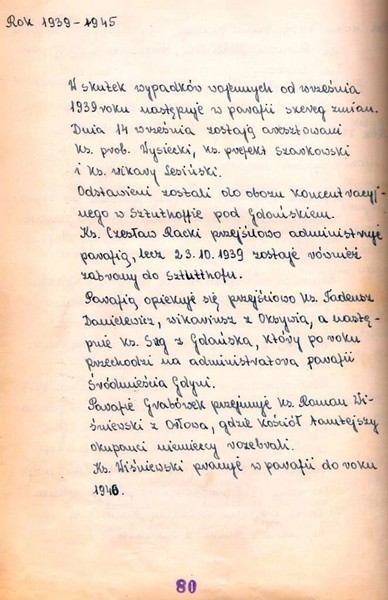 Rok 1939-1945
W skutek wypadków wojennych od września
1939 roku następuje w parafii szereg zmian.
Dnia 14 września zostają aresztowani
Ks. prob. Wysiecki, Ks. prefekt Szarkowski
i Ks. wikary Lesiński.
Odstawieni zostali do obozu koncentracyj-
nego w Sztuthoffie pod Gdańskiem.
Ks. Czesław Racki przejściowo administruje
parafią, lecz 23.10.1939 zostaje również
zabrany do Sztutthofu.
Parafią opiekuje się przejściowo Ks. Tadeusz
Danielewicz, wikariusz z Oksywia, a nastę-
pnie Ks. Szg z Gdańska, który po roku
przechodzi na administratora parafii
Śródmieścia Gdyni.
Parafię Grabówek przejmuje Ks. Roman Wi-
śniewski z Orłowa, gdzie kościół tamtejszy
okupanci niemieccy rozebrali.
Ks. Wiśniewski pracuje w parafii do roku
1946.
80